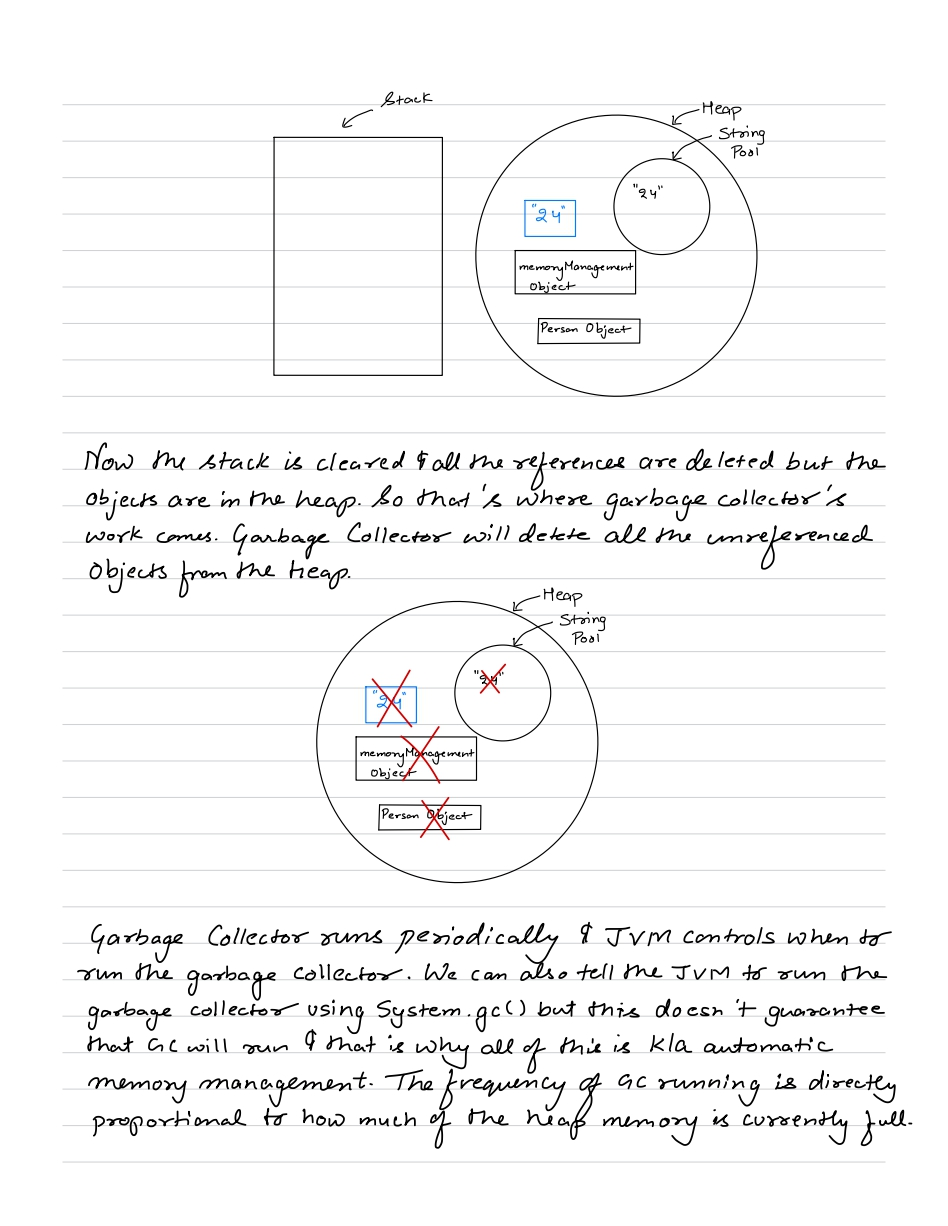 Stack
Heap
String
Pool
"24"
"24"
memoryManagement
Object
Person Object
Now the stack is cleared & all the references are deleted but the
objects are in the heap. So that's where garbage collector's
work comes. Garbage Collector will delete all the unreferenced
Objects from the heap.
Heap
String
Pool
"24"
"24"
memoryManagement
Object
Person Object
Garbage Collector runs periodically & JVM controls when to
run the garbage collector. We can also tell the JVM to run the
garbage collector using System.gc() but this doesn't guarantee
that GC will run & that is why all of this is k/a automatic
memory management. The frequency of GC running is directly
proportional to how much of the heap memory is currently full.